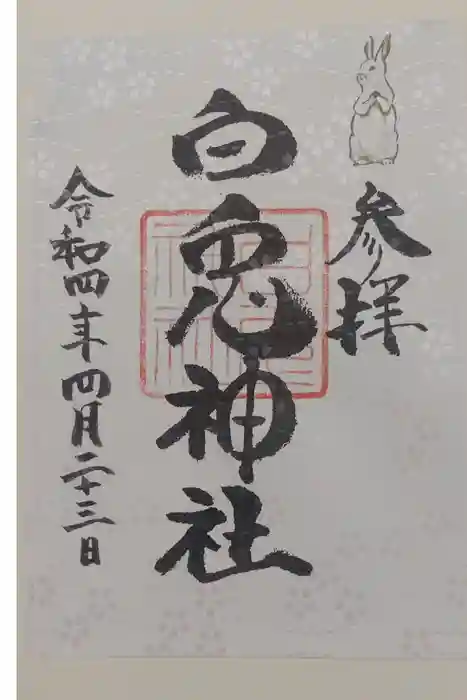 参拝
白兎神社
令和四年四月二十三日